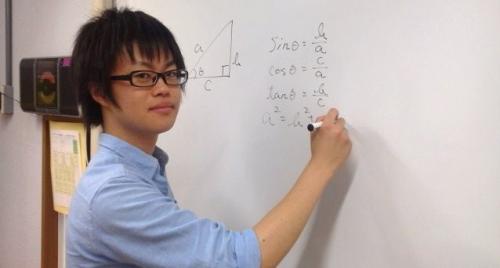 a
h
θ
c
sinθ = h/a
cosθ = c/a
tanθ = h/c
a² = h² +